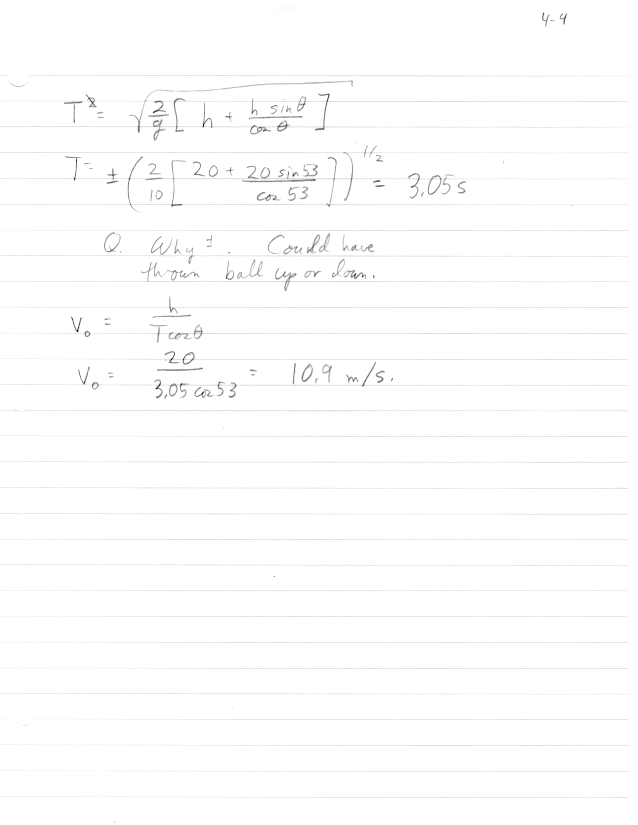 4-4
T = √ 2/g [ h + h sin θ / cos θ ]
T = ± ( 2/10 [ 20 + 20 sin 53 / cos 53 ] )^1/2 = 3.05 s
Q. Why ±. Could have
thrown ball up or down.
V₀ = h / T cos θ
V₀ = 20 / 3.05 cos 53 = 10.9 m/s.